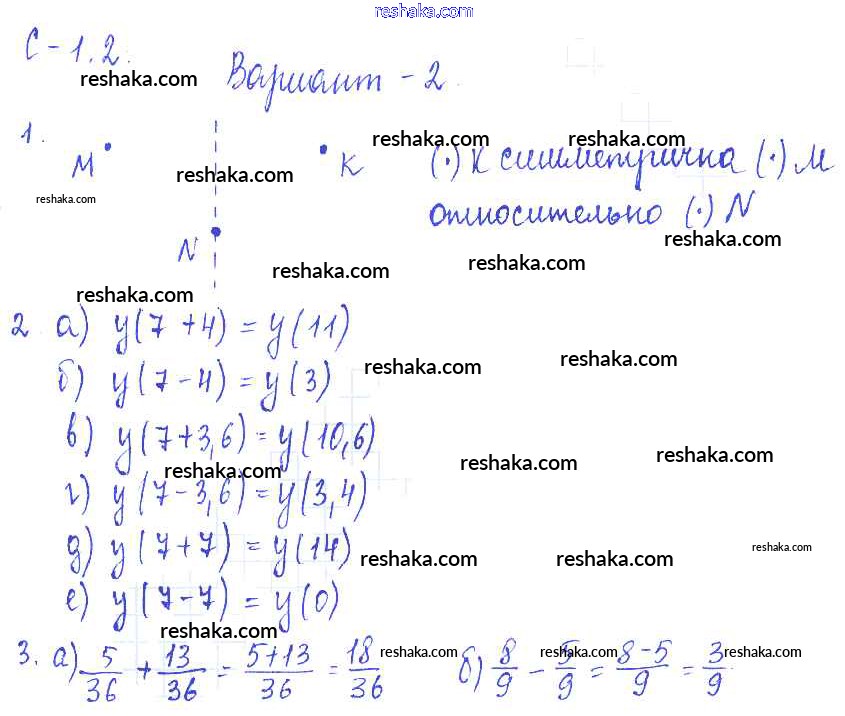 reshaka.com
С-1.2.
reshaka.com
Вариант - 2.
1.
М
К
reshaka.com reshaka.com reshaka.com
(·) К симметрична (·) М
reshaka.com
относительно (·) N
reshaka.com
N
reshaka.com reshaka.com
reshaka.com
2 а) у(7+4) = у(11)
reshaka.com reshaka.com
б) у(7-4) = у(3)
в) у(7+3,6) = у(10,6)
reshaka.com reshaka.com reshaka.com
г) у(7-3,6) = у(3,4)
д) у(7+7) = у(14)
reshaka.com reshaka.com reshaka.com
е) у(7-7) = у(0)
reshaka.com
3. а) 5/36 + 13/36 = (5+13)/36 = 18/36 б) 8/9 - 5/9 = (8-5)/9 = 3/9
reshaka.com reshaka.com reshaka.com reshaka.com